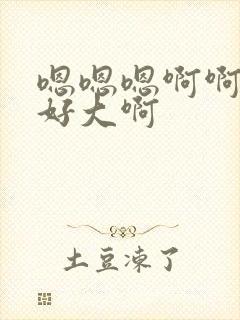 嗯嗯嗯啊啊
好大啊
土豆涑了